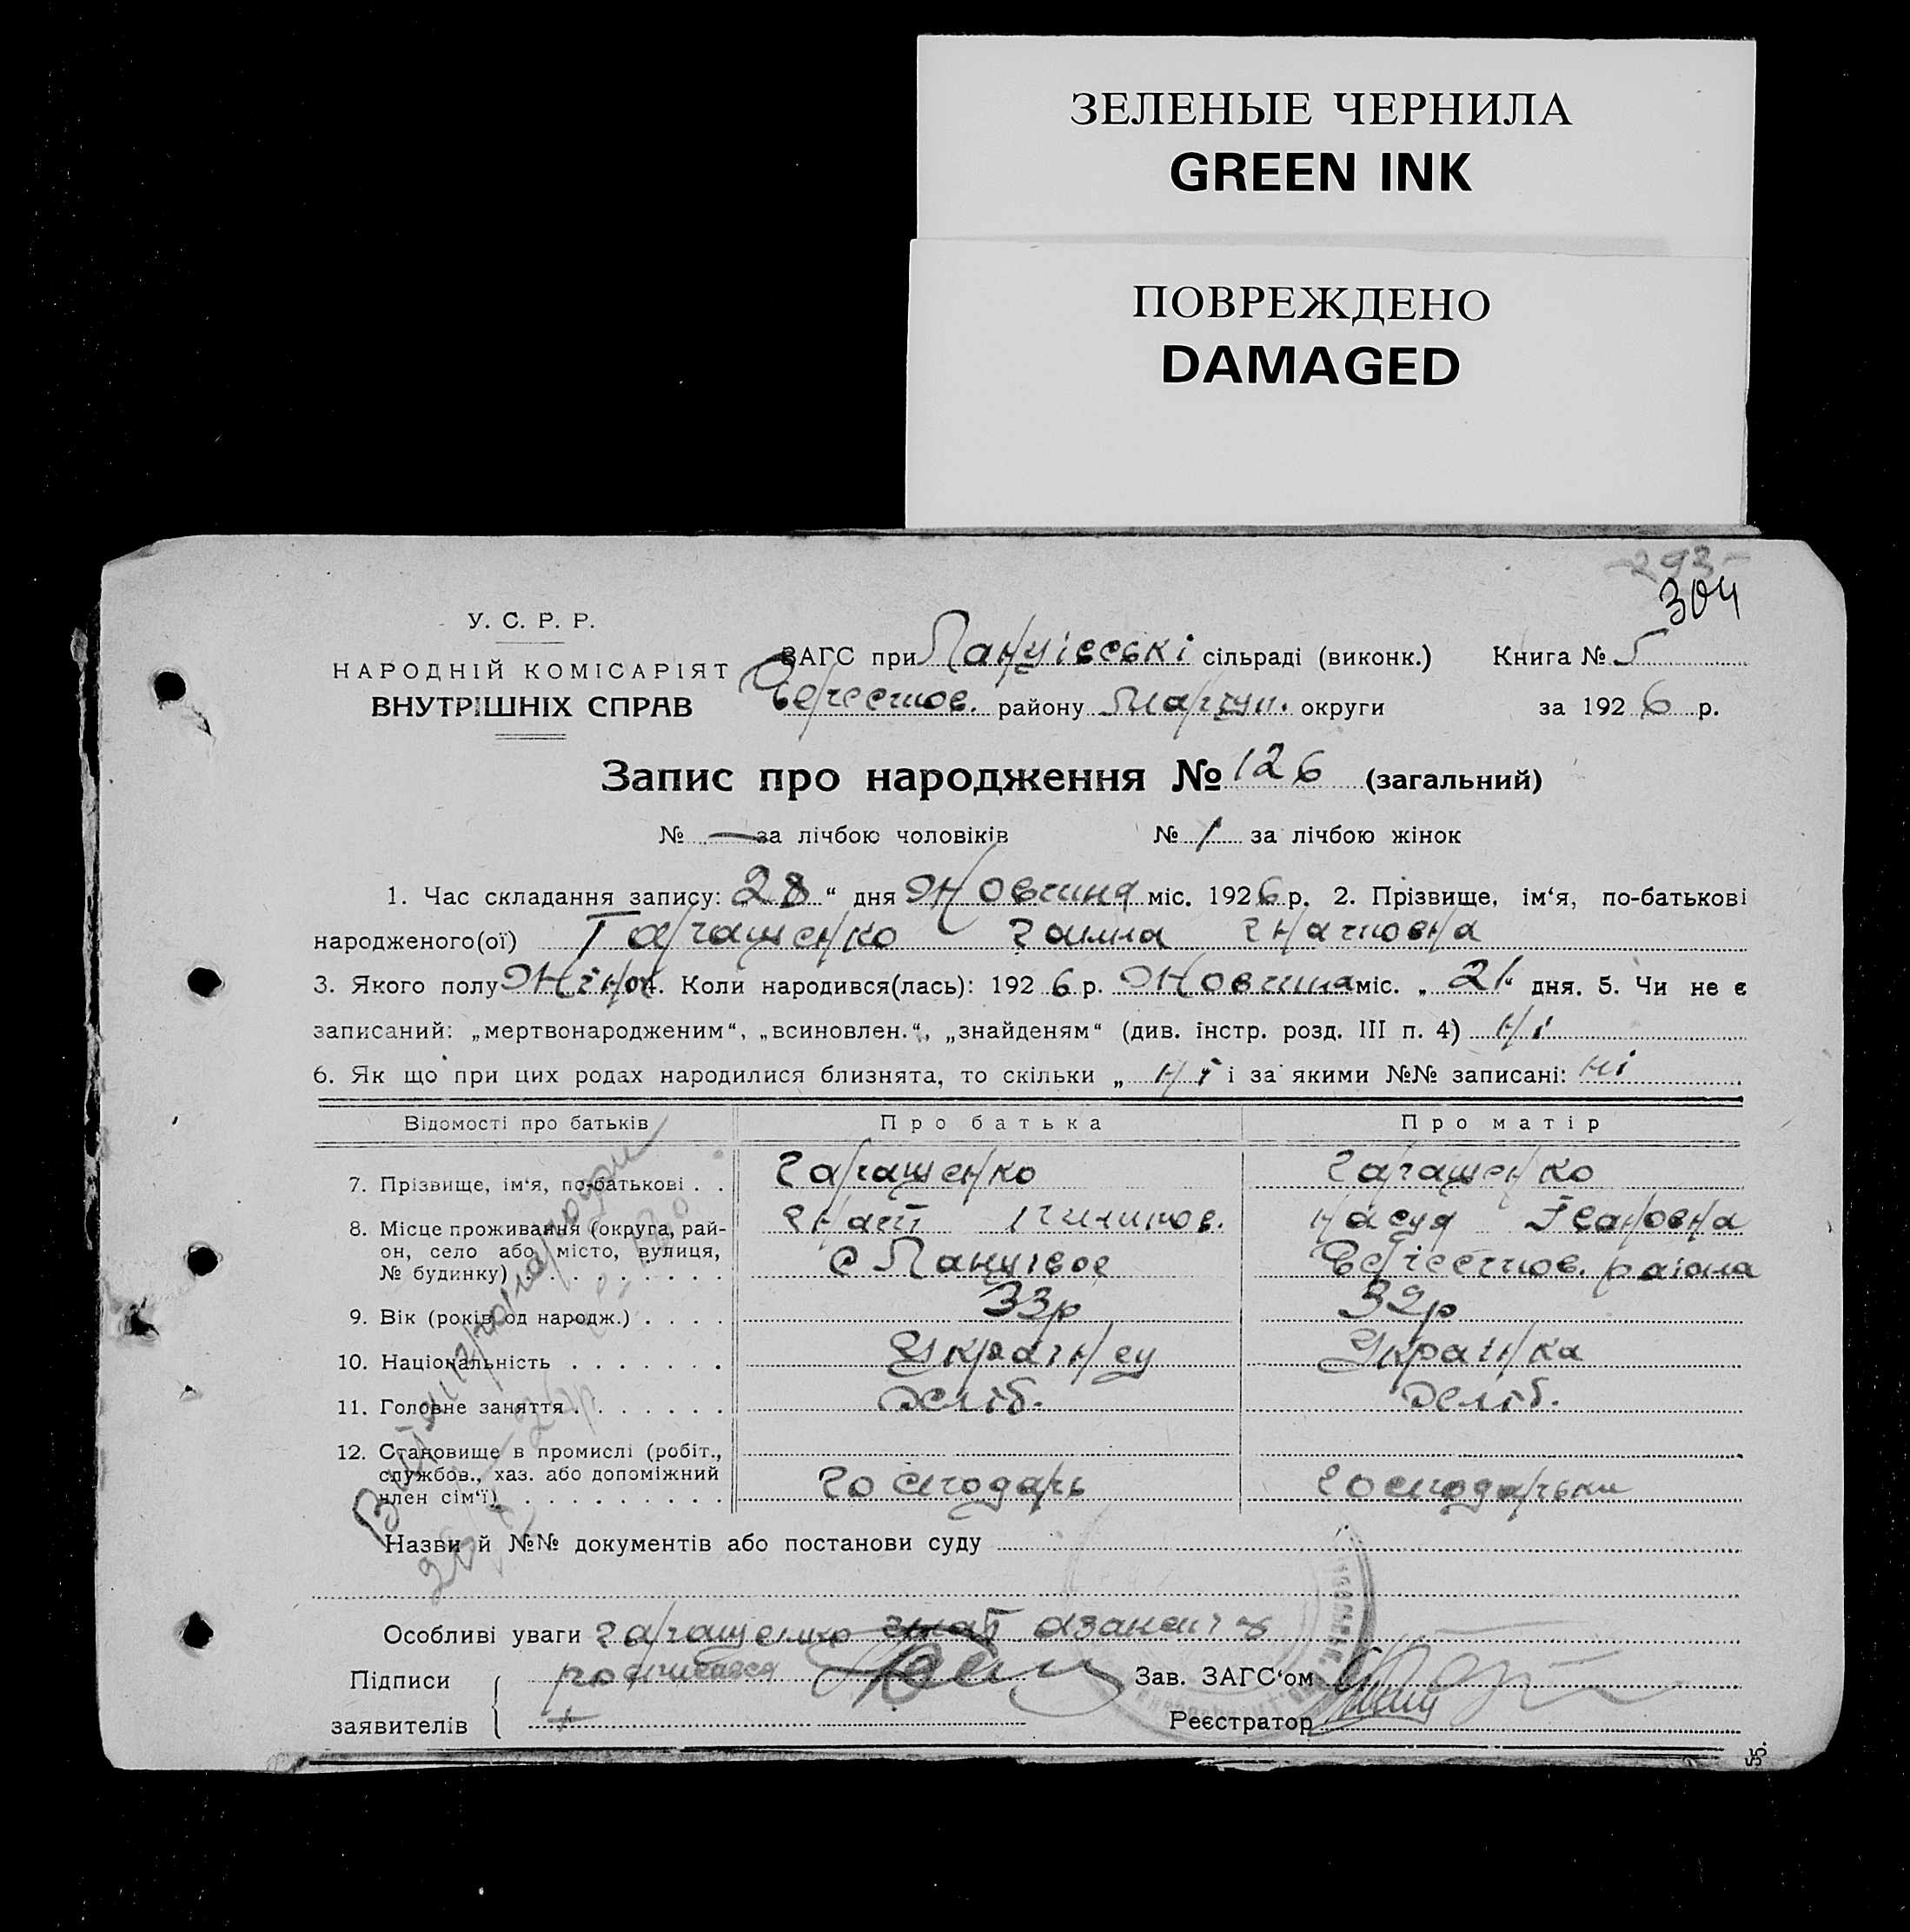 ЗЕЛЕНЫЕ ЧЕРНИЛА
GREEN INK
ПОВРЕЖДЕНО
DAMAGED
-293-
304
У. С. Р. Р.
НАРОДНІЙ КОМІСАРІЯТ
ВНУТРІШНІХ СПРАВ
ЗАГС при Панчівські сільраді (виконк.) Книга № 5
району округи за 1926 р.
Запис про народження № 126 (загальний)
№ — за лічбою чоловіків № 1 за лічбою жінок
1. Час складання запису: 28 “ дня Жовтня міс. 1926 р. 2. Прізвище, ім‘я, по-батькові
народженого(ої) Гаращенко Ганна Гнатовна
3. Якого полу Жіноч. Коли народився(лась): 1926 р. Жовтня міс. „ 21 “ дня. 5. Чи не є
записаний: „мертвонародженим“, „всиновлен.“, „знайденям“ (див. інстр. розд. III п. 4) Ні
6. Як що при цих родах народилися близнята, то скільки „ Ні і за якими №№ записані: Ні
Відомості про батьків Про батька Про матір
7. Прізвище, ім‘я, по-батькові . . Гаращенко Гаращенко
8. Місце проживання (округа, рай- Гнат Пилипов. Ївановна
он, село або місто, вулиця,
№ будинку) . . . . . . . . . . с Панчівое района
9. Вік (років од народж.) . . . . 33р 32р
10. Національність . . . . . . . Українец Українка
11. Головне заняття . . . . . . . хліб. хліб.
12. Становище в промислі (робіт.,
службов., хаз. або допоміжний
член сім‘ї) . . . . . . . . . . Господарь Господарьки
Назви й №№ документів або постанови суду
Особливі уваги Гаращенко Гнат
Підписи росписався Зав. ЗАГС‘ом
заявителів + Реєстратор